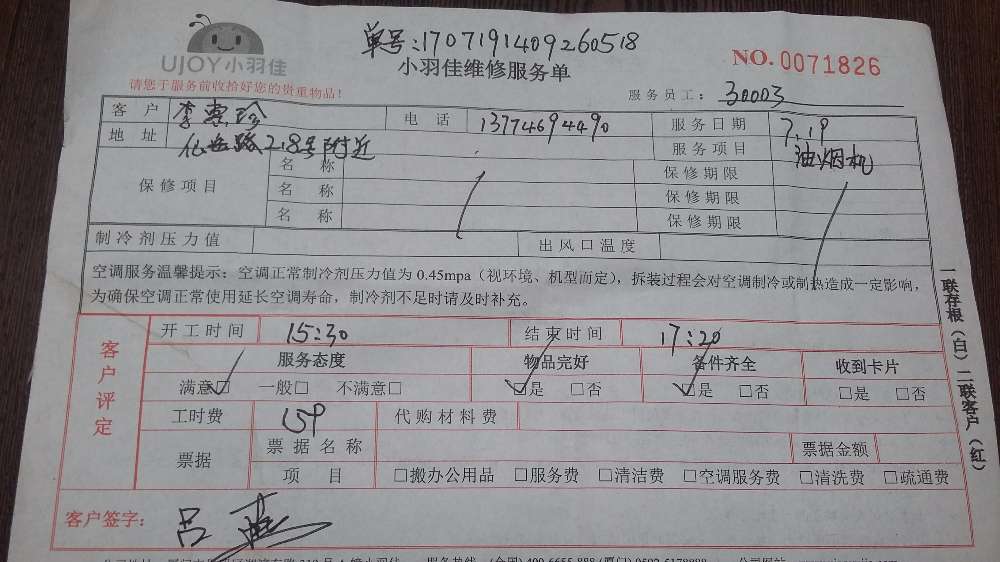 单号:1707191409260518
UJOY小羽佳
小羽佳维修服务单
NO. 0071826
请您于服务前收拾好您的贵重物品!
服务员工: 30003
客户 李惠珍 电话 13774694490 服务日期 7.19
地址 路28号附近 服务项目 油烟机
保修项目 名称 保修期限
名称 保修期限
名称 保修期限
制冷剂压力值 出风口温度
空调服务温馨提示:空调正常制冷剂压力值为 0.45mpa(视环境、机型而定),拆装过程会对空调制冷或制热造成一定影响,
为确保空调正常使用延长空调寿命,制冷剂不足时请及时补充。
一联存根(白)二联客户(红)
客户评定
开工时间 15:30 结束时间 17:20
服务态度 物品完好 备件齐全 收到卡片
满意□ 一般□ 不满意□ □是 □否 □是 □否 □是 □否
工时费 159 代购材料费
票据 票据名称 票据金额
项目 □搬办公用品 □服务费 □清洁费 □空调服务费 □清洗费 □疏通费
客户签字: 吕